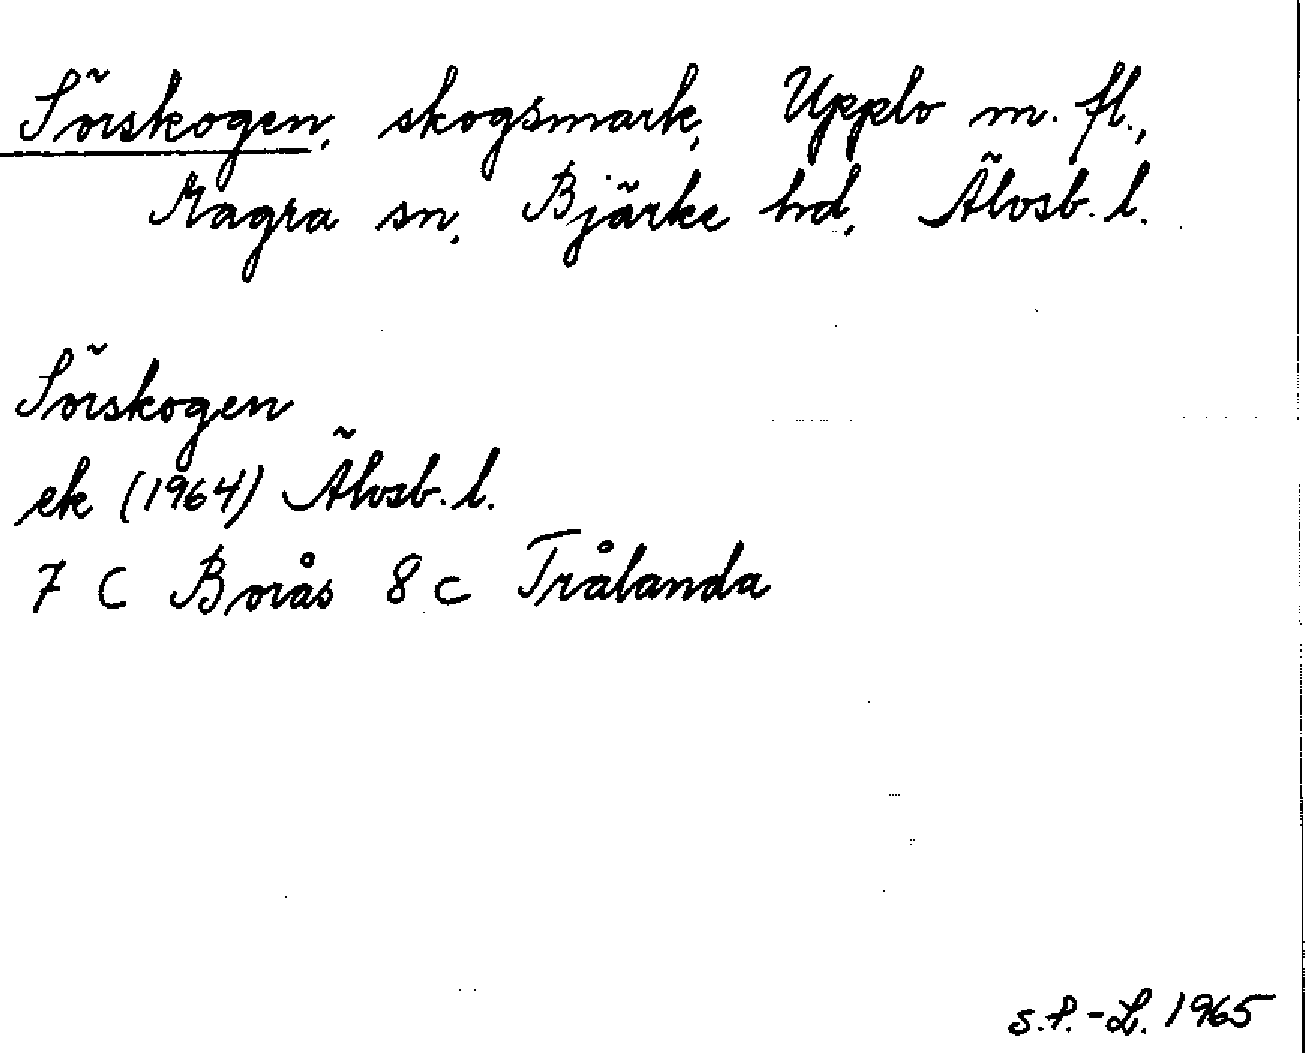 Sörskogen, skogsmark, Upplo m. fl.,
Magra sn, Bjärke hd, Älvsb. l.
Sörskogen
ek (1964) Älvsb. l.
7 C Borås 8 c Trålanda
S.P.-L. 1965